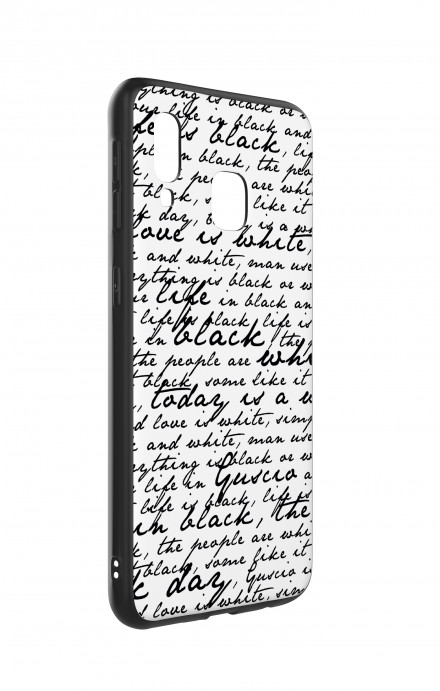 ything is black or w
our life in black and
life is black, lif
in black, the peo
are whi
t black, like it
k day, is a w
love is white,
k and white, man use
erything is black or w
ur life in black an
t life is black, life is
e in black, the
the people are whi
t black, some like it
, today is a w
d love is white, simp
k and white, man use
rything is black or w
our life in Guscio a
t life is black, life is
in black, the
k, the people are whi
t black, some like it
k day, Guscio is
s love is white, sim